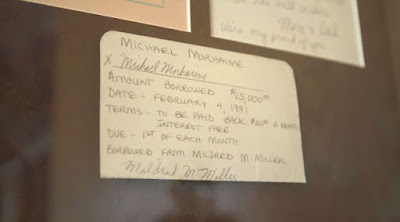 Mom & Dad
proud of you
MICHAEL MORHAIME
X Michael Morhaime
AMOUNT BORROWED $15,000.00
DATE - FEBRUARY 4, 1991
TERMS - TO BE PAID BACK A MONTH
INTEREST FREE
DUE - 1ST OF EACH MONTH
BORROWED FROM MILDRED M. MILLER
Mildred M. Miller